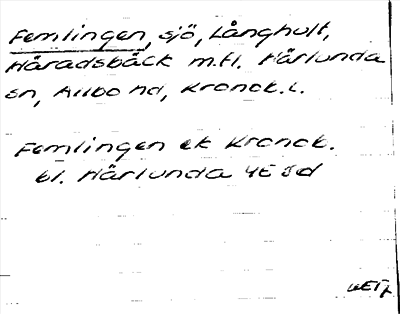 Femlingen, sjö, Långhult,
Häradsbäck m.fl. Härlunda
sn, Allbo hd, Kronob. L.
Femlingen ek Kronob.
bl. Härlunda 4E 5d